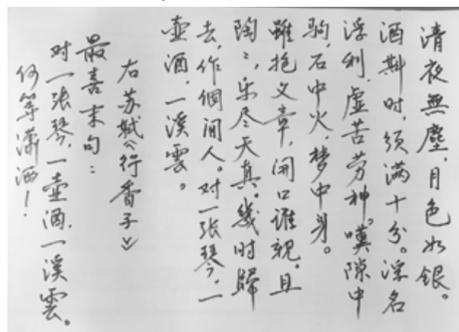 清夜無塵，月色如銀。
酒斟时，须满十分。浮名
浮利，虚苦劳神。嘆隙中
驹，石中火，梦中身。
雖抱文章，開口誰親。且
陶陶，乐尽天真。幾时歸
去，作個闲人。对一张琴，一
壶酒，一溪雲。
右苏轼《行香子》
最喜末句：
对一張琴，一壶酒，一溪雲。
何等潇洒！